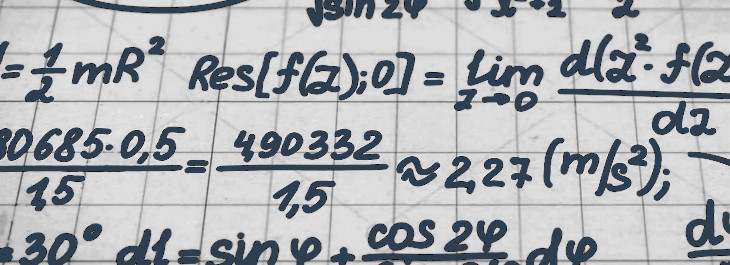 √sin 2φ
= 1/2 mR² Res[f(z);0] = lim z→0 d(z²·f(z / dz
80685·0,5 / 1,5 = 490332 / 1,5 ≈ 2,27 (m/s²);
=30° d1 = sin φ + cos 2φ dφ